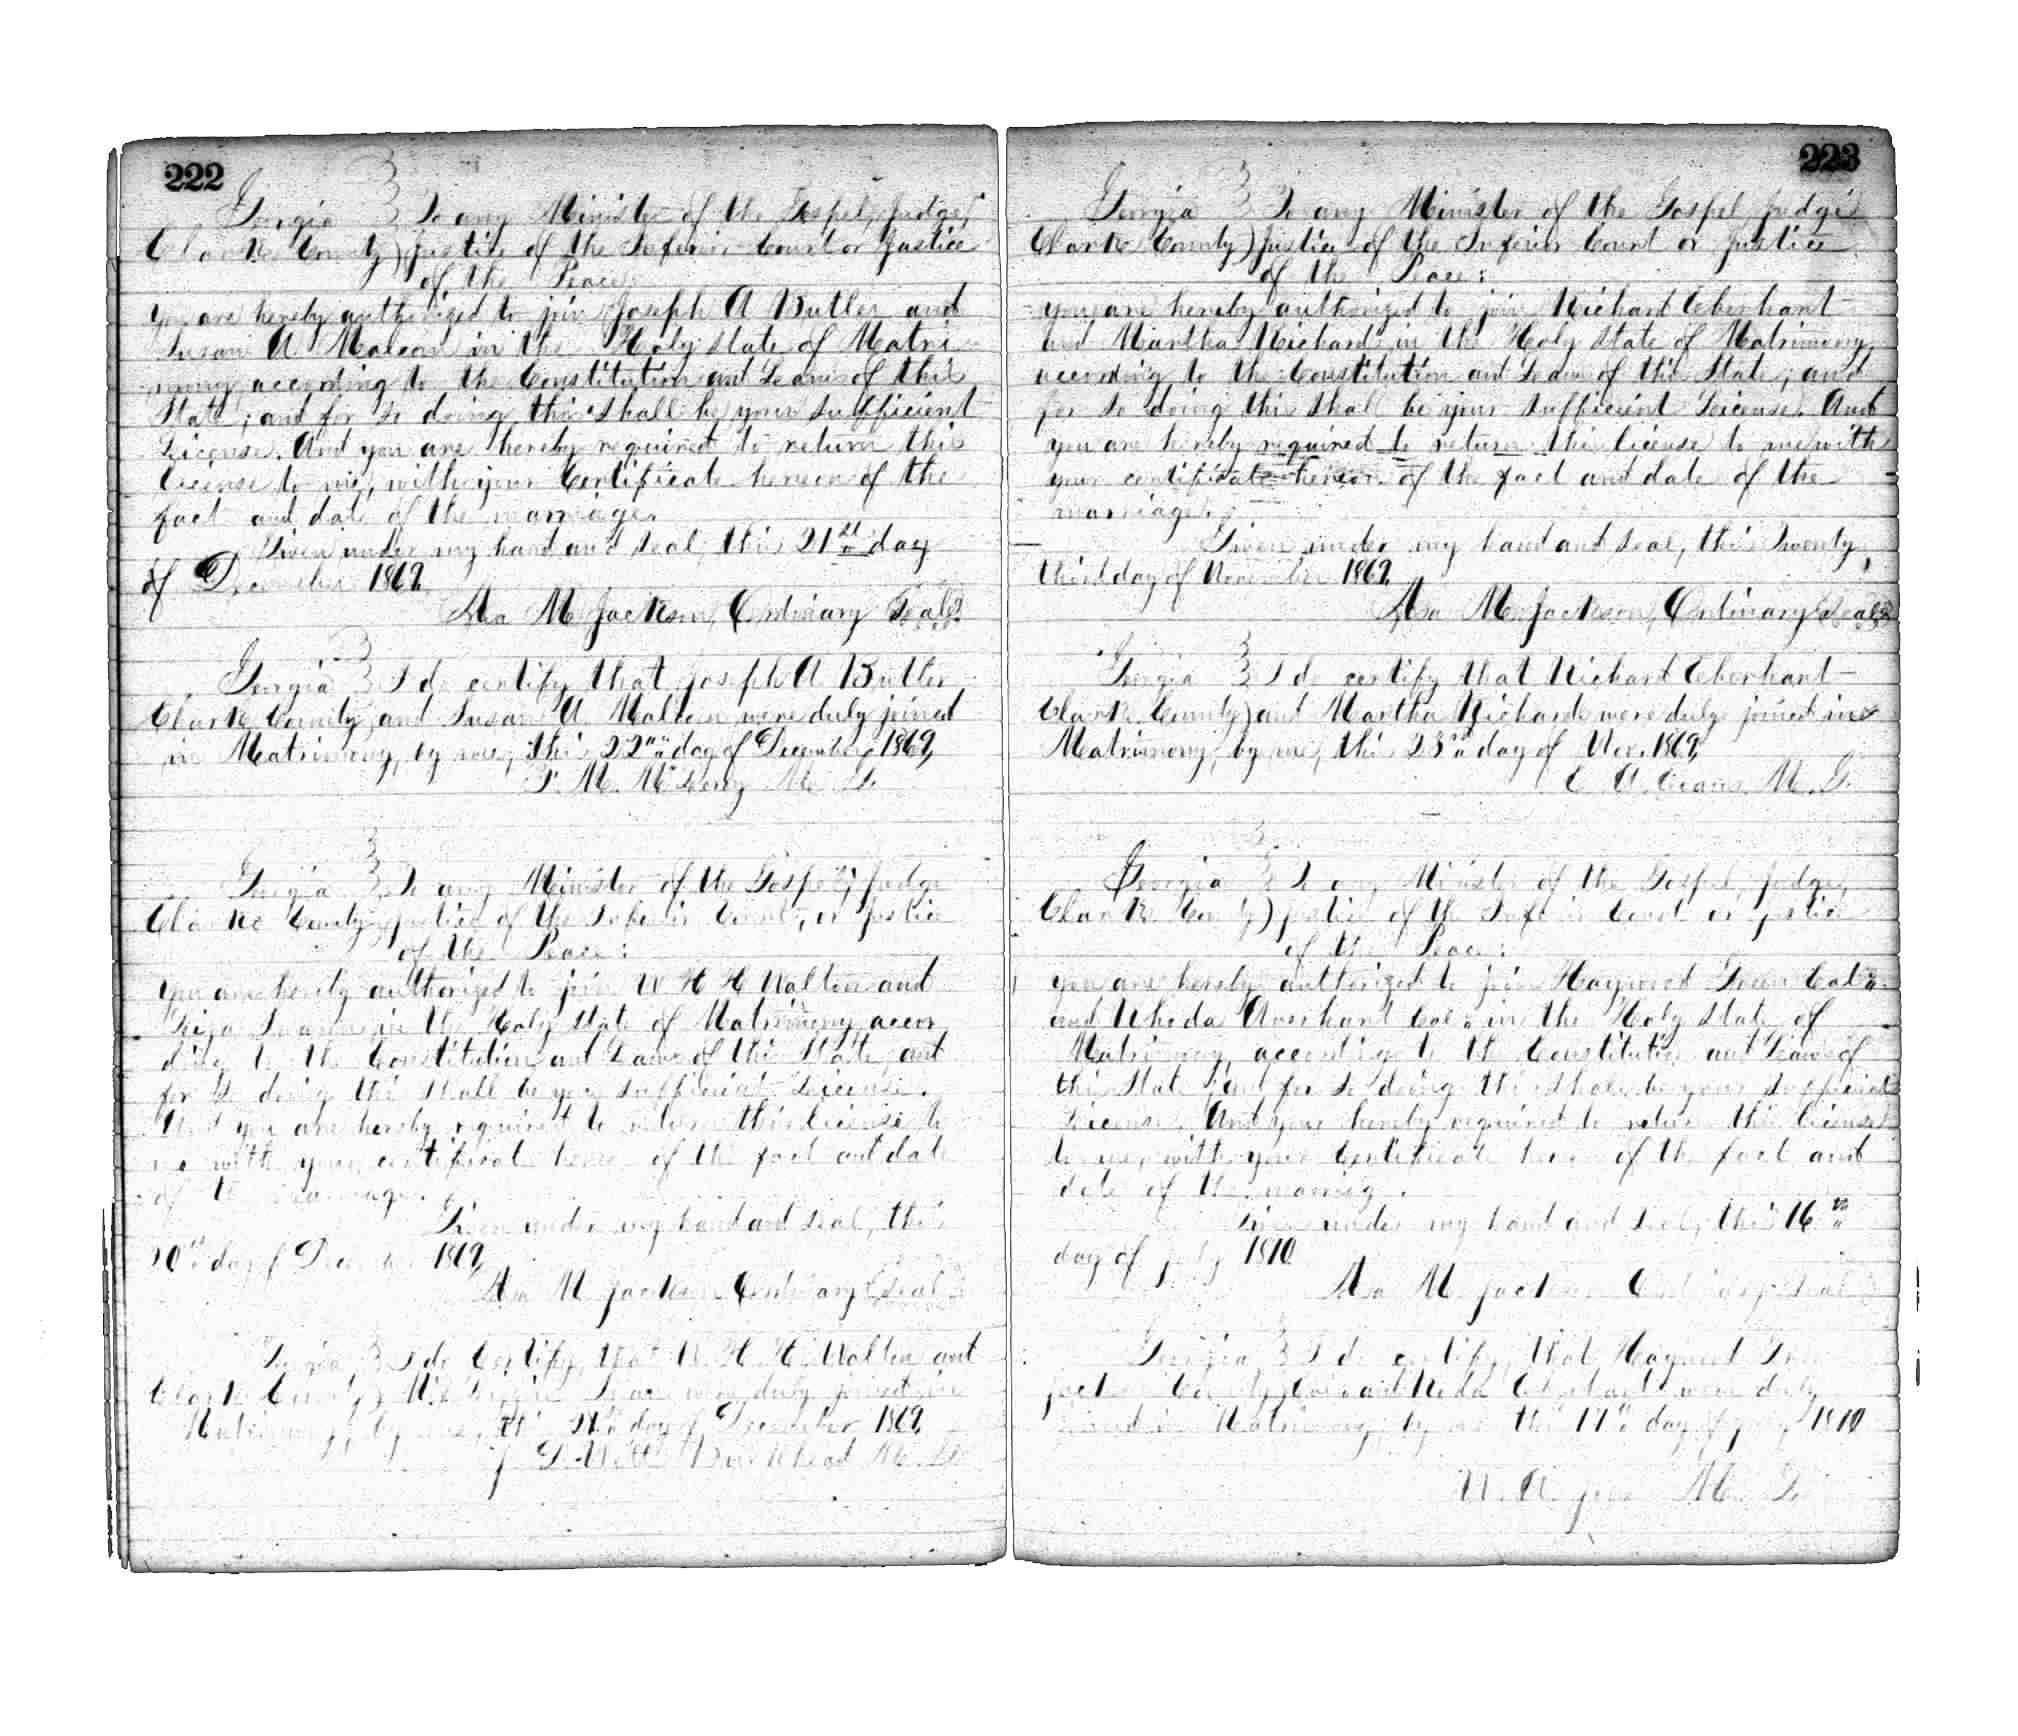 222
Georgia } To any Minister of the Gospel, Judge,
Clarke County) Justice of the Inferior Court or Justice
of the Peace:
You are hereby authorized to join Joseph A Butler and
Susan A Malcom in the Holy state of Matri
mony, according to the Constitution and Laws of this
State; and for so doing this shall be your sufficient
License. And you are hereby required to return this
License to me, with your Certificate hereon of the
fact and date of the marriage.
Given under my hand and seal, this 21st day
of December 1869
Asa M Jackson, Ordinary Seal
Georgia } I do certify that Joseph A Butler
Clarke County and Susan A Malcom were duly joined
in Matrimony, by me, this 22nd day of December 1869
M. G.
Georgia } To any Minister of the Gospel, Judge
Clarke County Justice of the Inferior Court, or Justice
of the Peace:
You are hereby authorized to join W H H Walton and
in the Holy state of Matrimony accor
ding to the Constitution and Laws of this State, and
for so doing this shall be your sufficient License.
And you are hereby required to return this license to
me with your certificate hereon of the fact and date
of the marriage.
Given under my hand and seal, this
20th day of December 1869
Asa M Jackson Ordinary Seal
Georgia } I do Certify that W. H. H. Walton and
Clarke County were duly joined in
Matrimony, by me, this day of December 1869
M. G.
223
Georgia } To any Minister of the Gospel, Judge
Clarke County) Justice of the Inferior Court or Justice
of the Peace:
you are hereby authorized to join Richard Eberhart
and Martha Richards in the Holy State of Matrimony,
according to the Constitution and Laws of this State; and
for so doing this shall be your sufficient License. And
you are hereby required to return this license to me with
your certificate hereon of the fact and date of the
marriage.
Given under my hand and seal, this Twenty
third day of November 1869
Asa M. Jackson, Ordinary Seal
Georgia } I do certify that Richard Eberhart
Clarke County) and Martha Richards were duly joined in
Matrimony, by me, this 23rd day of Nov. 1869
M. G.
Georgia } To any Minister of the Gospel, Judge,
Clarke County) Justice of the Inferior Court or Justice
of the Peace:
you are hereby authorized to join Haywood Green Col.
and Rhoda Col. in the Holy State of
Matrimony, according to the Constitution and Laws of
this State; and for so doing this shall be your sufficient
License. And your hereby required to return this license
to me, with your Certificate hereon of the fact and
date of the marriage.
Given under my hand and seal, this 16th
day of July 1870
Asa M Jackson Ordinary Seal
Georgia } I do certify that Haywood Green
County were duly
joined in Matrimony, by me this 17th day of July 1870
M. G.